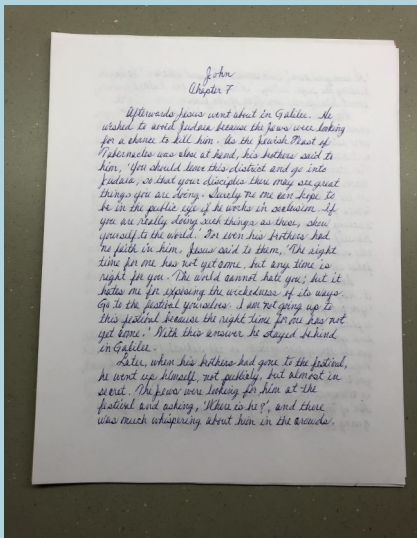 John
Chapter 7
Afterwards Jesus went about in Galilee. He
wished to avoid Judaea because the Jews were looking
for a chance to kill him. As the Jewish Feast of
Tabernacles was close at hand, his brothers said to
him, 'You should leave this district and go into
Judaea, so that your disciples there may see great
things you are doing. Surely no one can hope to
be in the public eye if he works in seclusion. If
you are really doing such things as these, show
yourself to the world.' For even his brothers had
no faith in him. Jesus said to them, 'The right
time for me has not yet come, but any time is
right for you. The world cannot hate you; but it
hates me for exposing the wickedness of its ways.
Go to the festival yourselves. I am not going up to
this festival because the right time for me has not
yet come.' With this answer he stayed behind
in Galilee.
Later, when his brothers had gone to the festival,
he went up himself, not publicly, but almost in
secret. The Jews were looking for him at the
festival and asking, 'Where is he?', and there
was much whispering about him in the crowds.